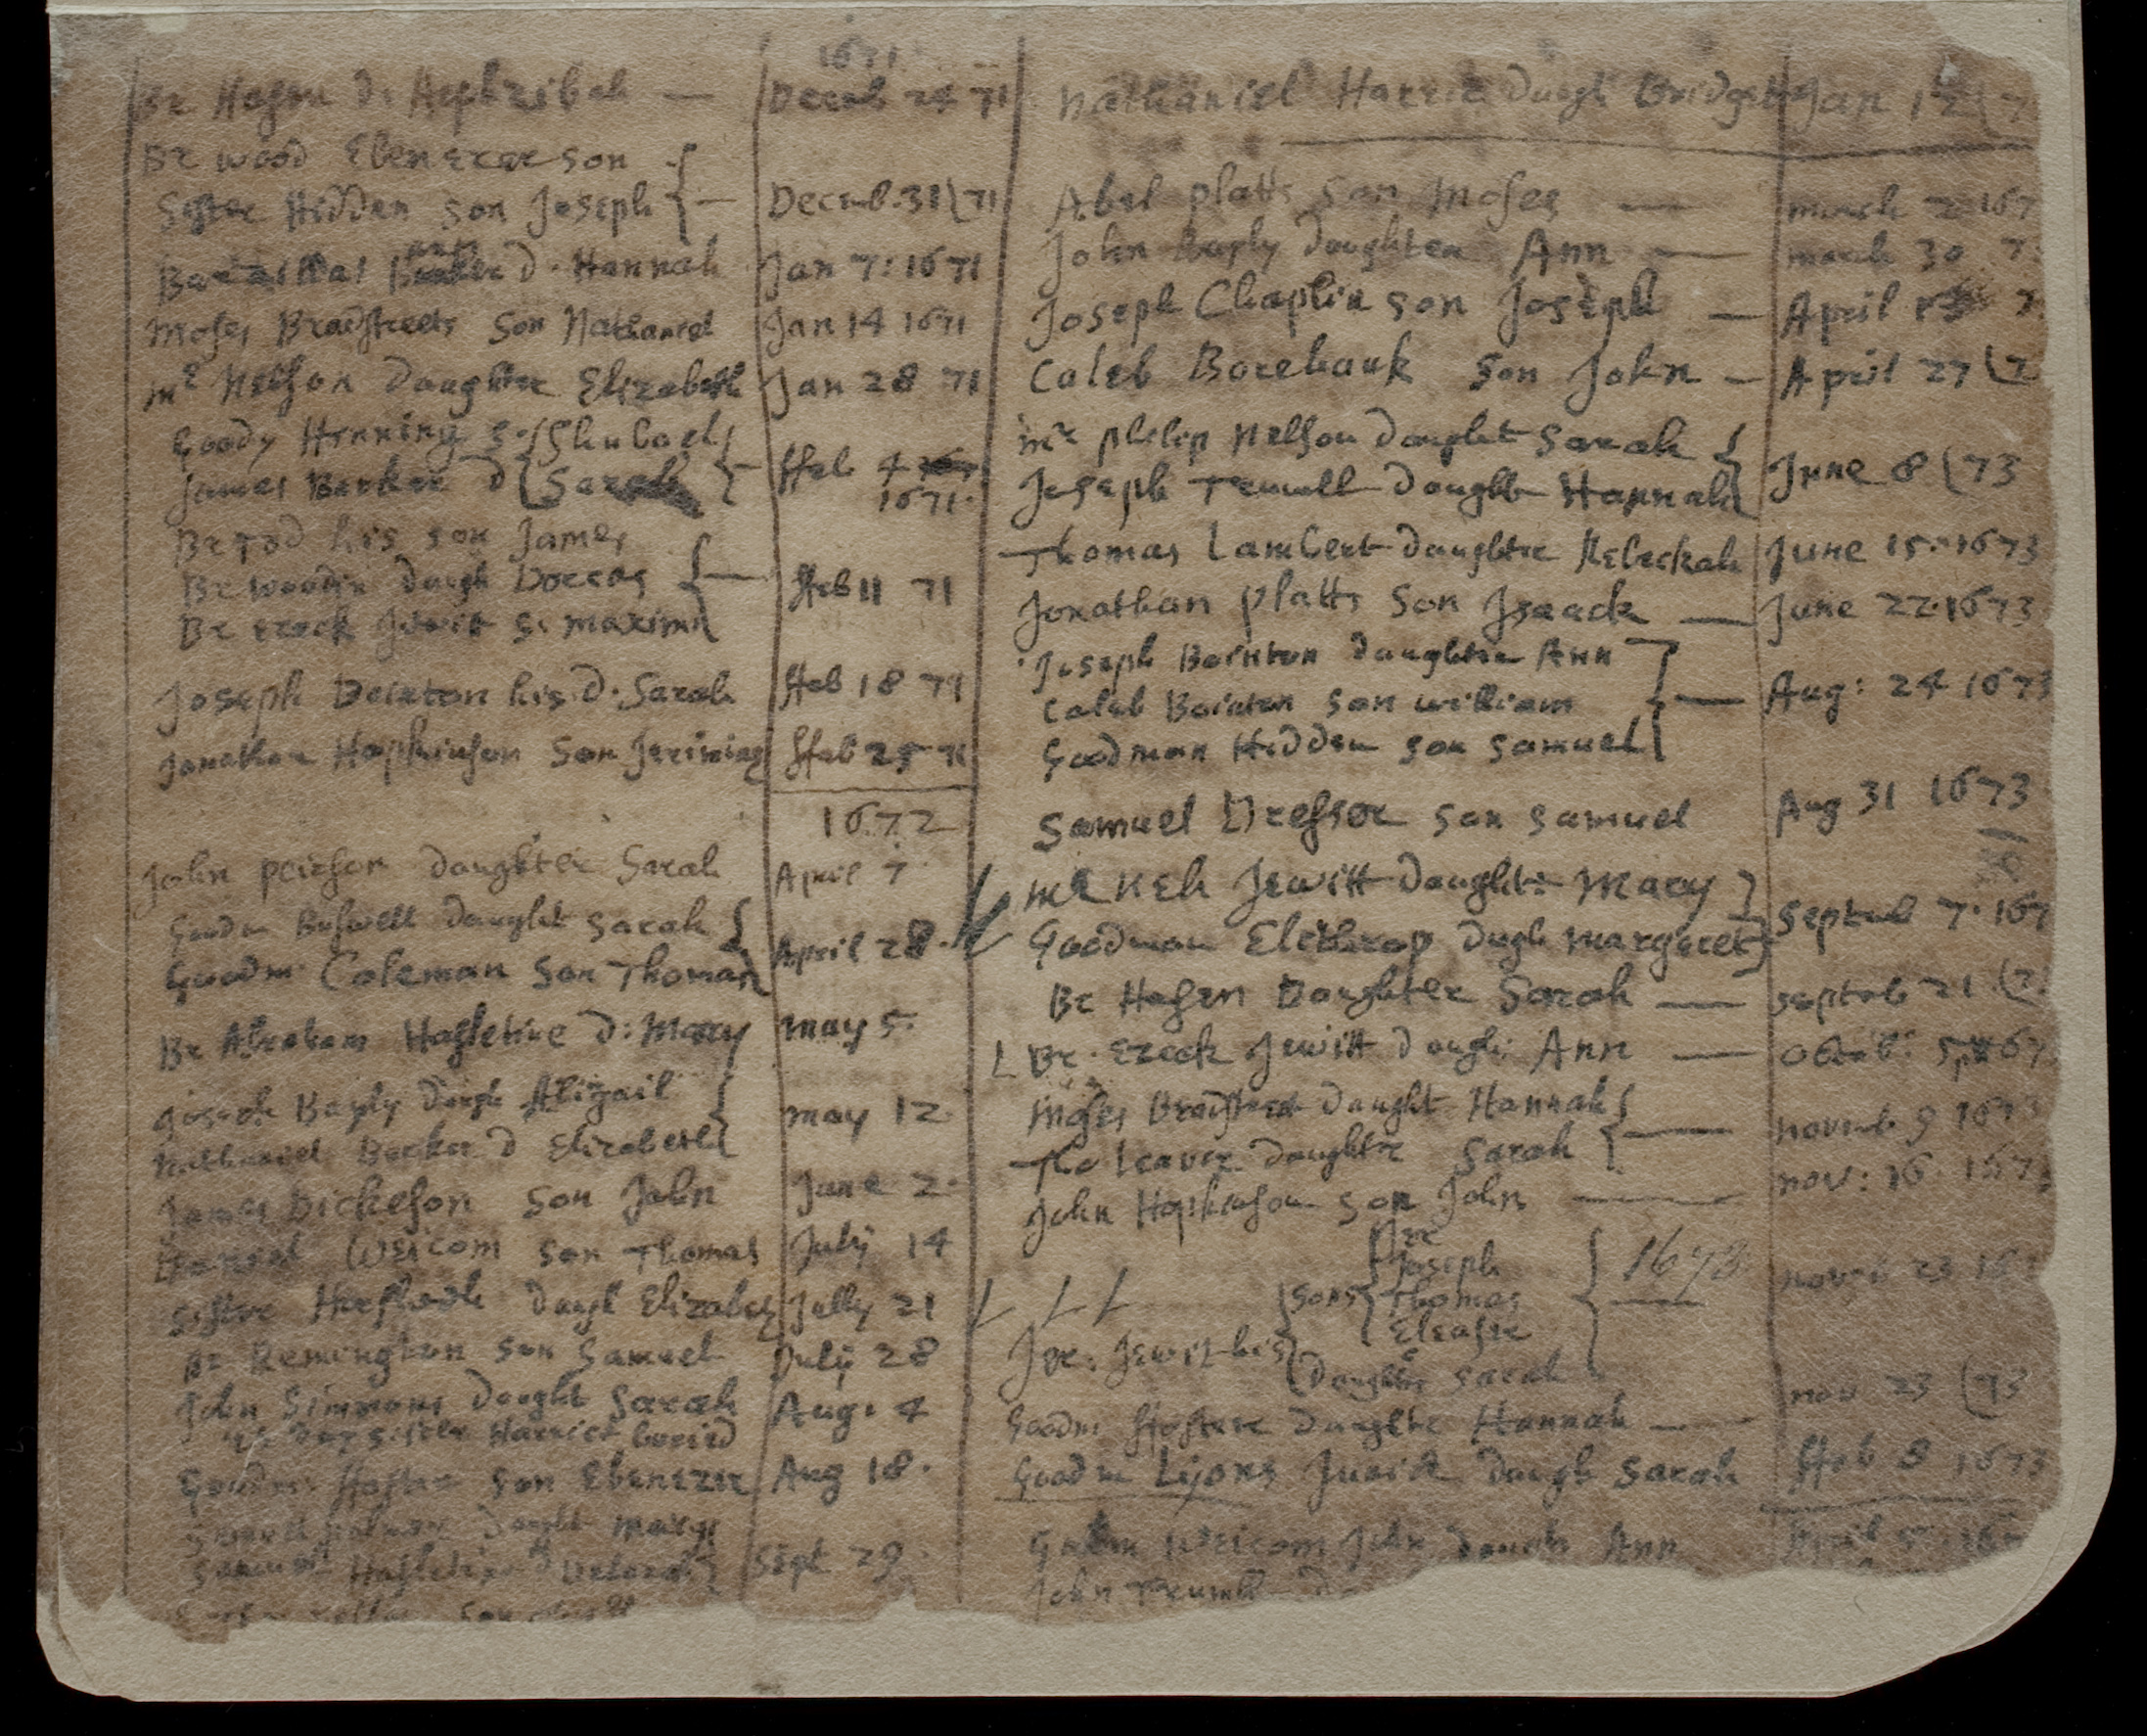 1671
Br Hasen d. Hephzibah — Decemb 24 71
Br wood Ebenezer son
Sister Hidden son Joseph — Decemb. 31 71
Barzillai Barker d. Hannah Jan 7: 1671
Moses Bradstreets son Nathaniel Jan 14 1671
mr Nelson Daughter Elizabeth Jan 28 71
Goody Henning s. Shubael
James Barker d Sarah — ffeb 4 1671.
Br Tod his son James
Br Woodin daugh Dorcas — ffeb 11 71
Br Ezeck Jewit s. maximil
Joseph Beinton his d. Sarah ffeb 18 71
Jonathan Hopkinson son Jeremiag ffeb 25 71
1672
John peirson daughter Sarah April 7
Goodm Buswell daught Sarah
Goodm Coleman son Thomas April 28.
Br Abraham Hasletine d: Mary may 5.
Joseph Bayly daugh Abigail
Nathaniel Barker d Elizabeth may 12.
James Dickeson son John June 2.
Daniel Weicom son Thomas July 14
Sister Harshock daugh Elizabeg Jully 21
Br Remington son Samuel July 28
John Simmons daught Sarah Aug: 4
day sister Harriet buried
Goodm ffoster son Ebenezer Aug 18.
Samuel daught mary
Samuel Hasletine d Deborah Sept 29
son
Nathaniel Harris daugh Bridget Jan 12
Abel platts son Moses — march 2 167
John Bayly daughter Ann — march 30 7
Joseph Chaplin son Joseph — April 7
Caleb Borebank son John — April 27 7
mr philip Nellson daught Sarah
Joseph Trumll daught Hannah June 8 73
Thomas Lambert daughter Rebeckah June 15. 1673
Jonathan platts son Isaack — June 22. 1673
Joseph Bointon daughter Ann
Caleb Bointon son william — Aug: 24 1673
Goodman Hidden son Samuel
Samuel Dresser son Samuel Aug 31 1673
mr Neh Jewitt daught: Mary
Goodman Elithrop dugh margaret Septemb 7. 167
Br Hasen Daughter Sarah — septeb 21 7
Br. Ezeck Jewitt daugh: Ann — 5 167
Moses Bradstreet daught Hannah
Tho Leaver daughter Sarah — novemb 9 1673
John Hopkinson son John — nov: 16 1673
Jer
Joseph
sons Thomas 1673 novem 23 16
Eleaser
Jer: Jewit his
Daughter Sarah
Goodm ffoster daughter Hannah — nov 23 73
Goodm Lyons Juda daugh Sarah ffeb 8 1673
Goodm Weicom John daugh Ann April 5 16
John Trumll